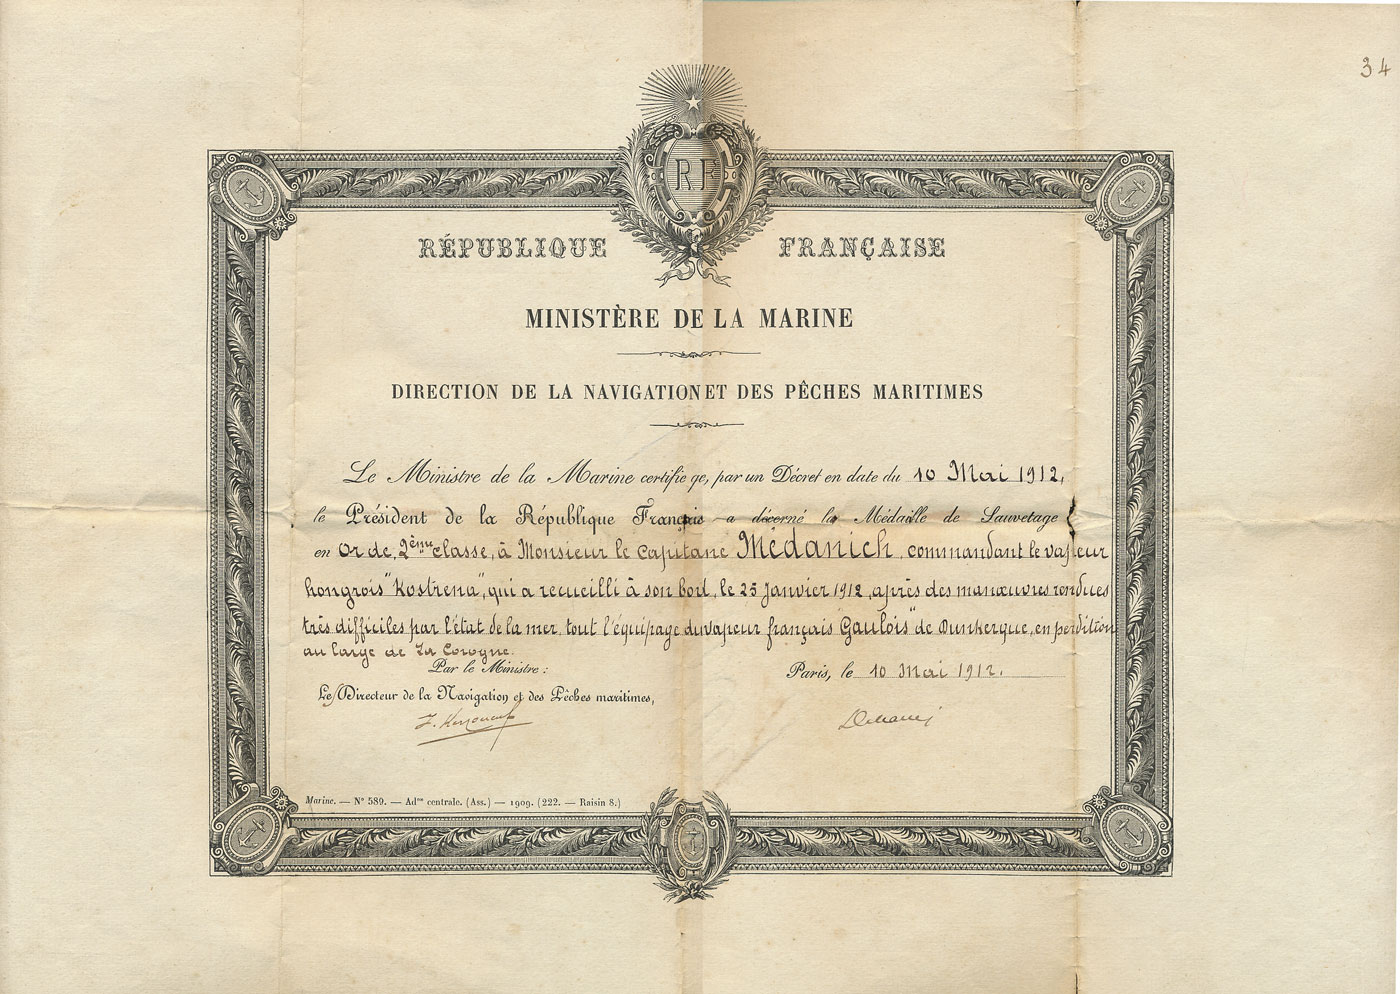 34
RF
RÉPUBLIQUE FRANÇAISE
MINISTÈRE DE LA MARINE
DIRECTION DE LA NAVIGATION ET DES PÊCHES MARITIMES
Le Ministre de la Marine certifie qe, par un Décret en date du 10 Mai 1912,
le Président de la République Français a décerné la Médaille de Sauvetage
en Or de 2ème classe, à Monsieur le Capitane Médanich, commandant le vapeur
hongrois "Kostrena", qui a recueilli à son bord, le 25 Janvier 1912, après des manœuvres rendues
très difficiles par l'état de la mer, tout l'équipage du vapeur français Gaulois" de Dunkerque, en perdition
au large de La Corogne.
Par le Ministre:
Paris, le 10 Mai 1912.
Le Directeur de la Navigation et des Pêches maritimes,
Marine. — N° 589. — Adon centrale. (Ass.) — 1909. (222. — Raisin 8.)